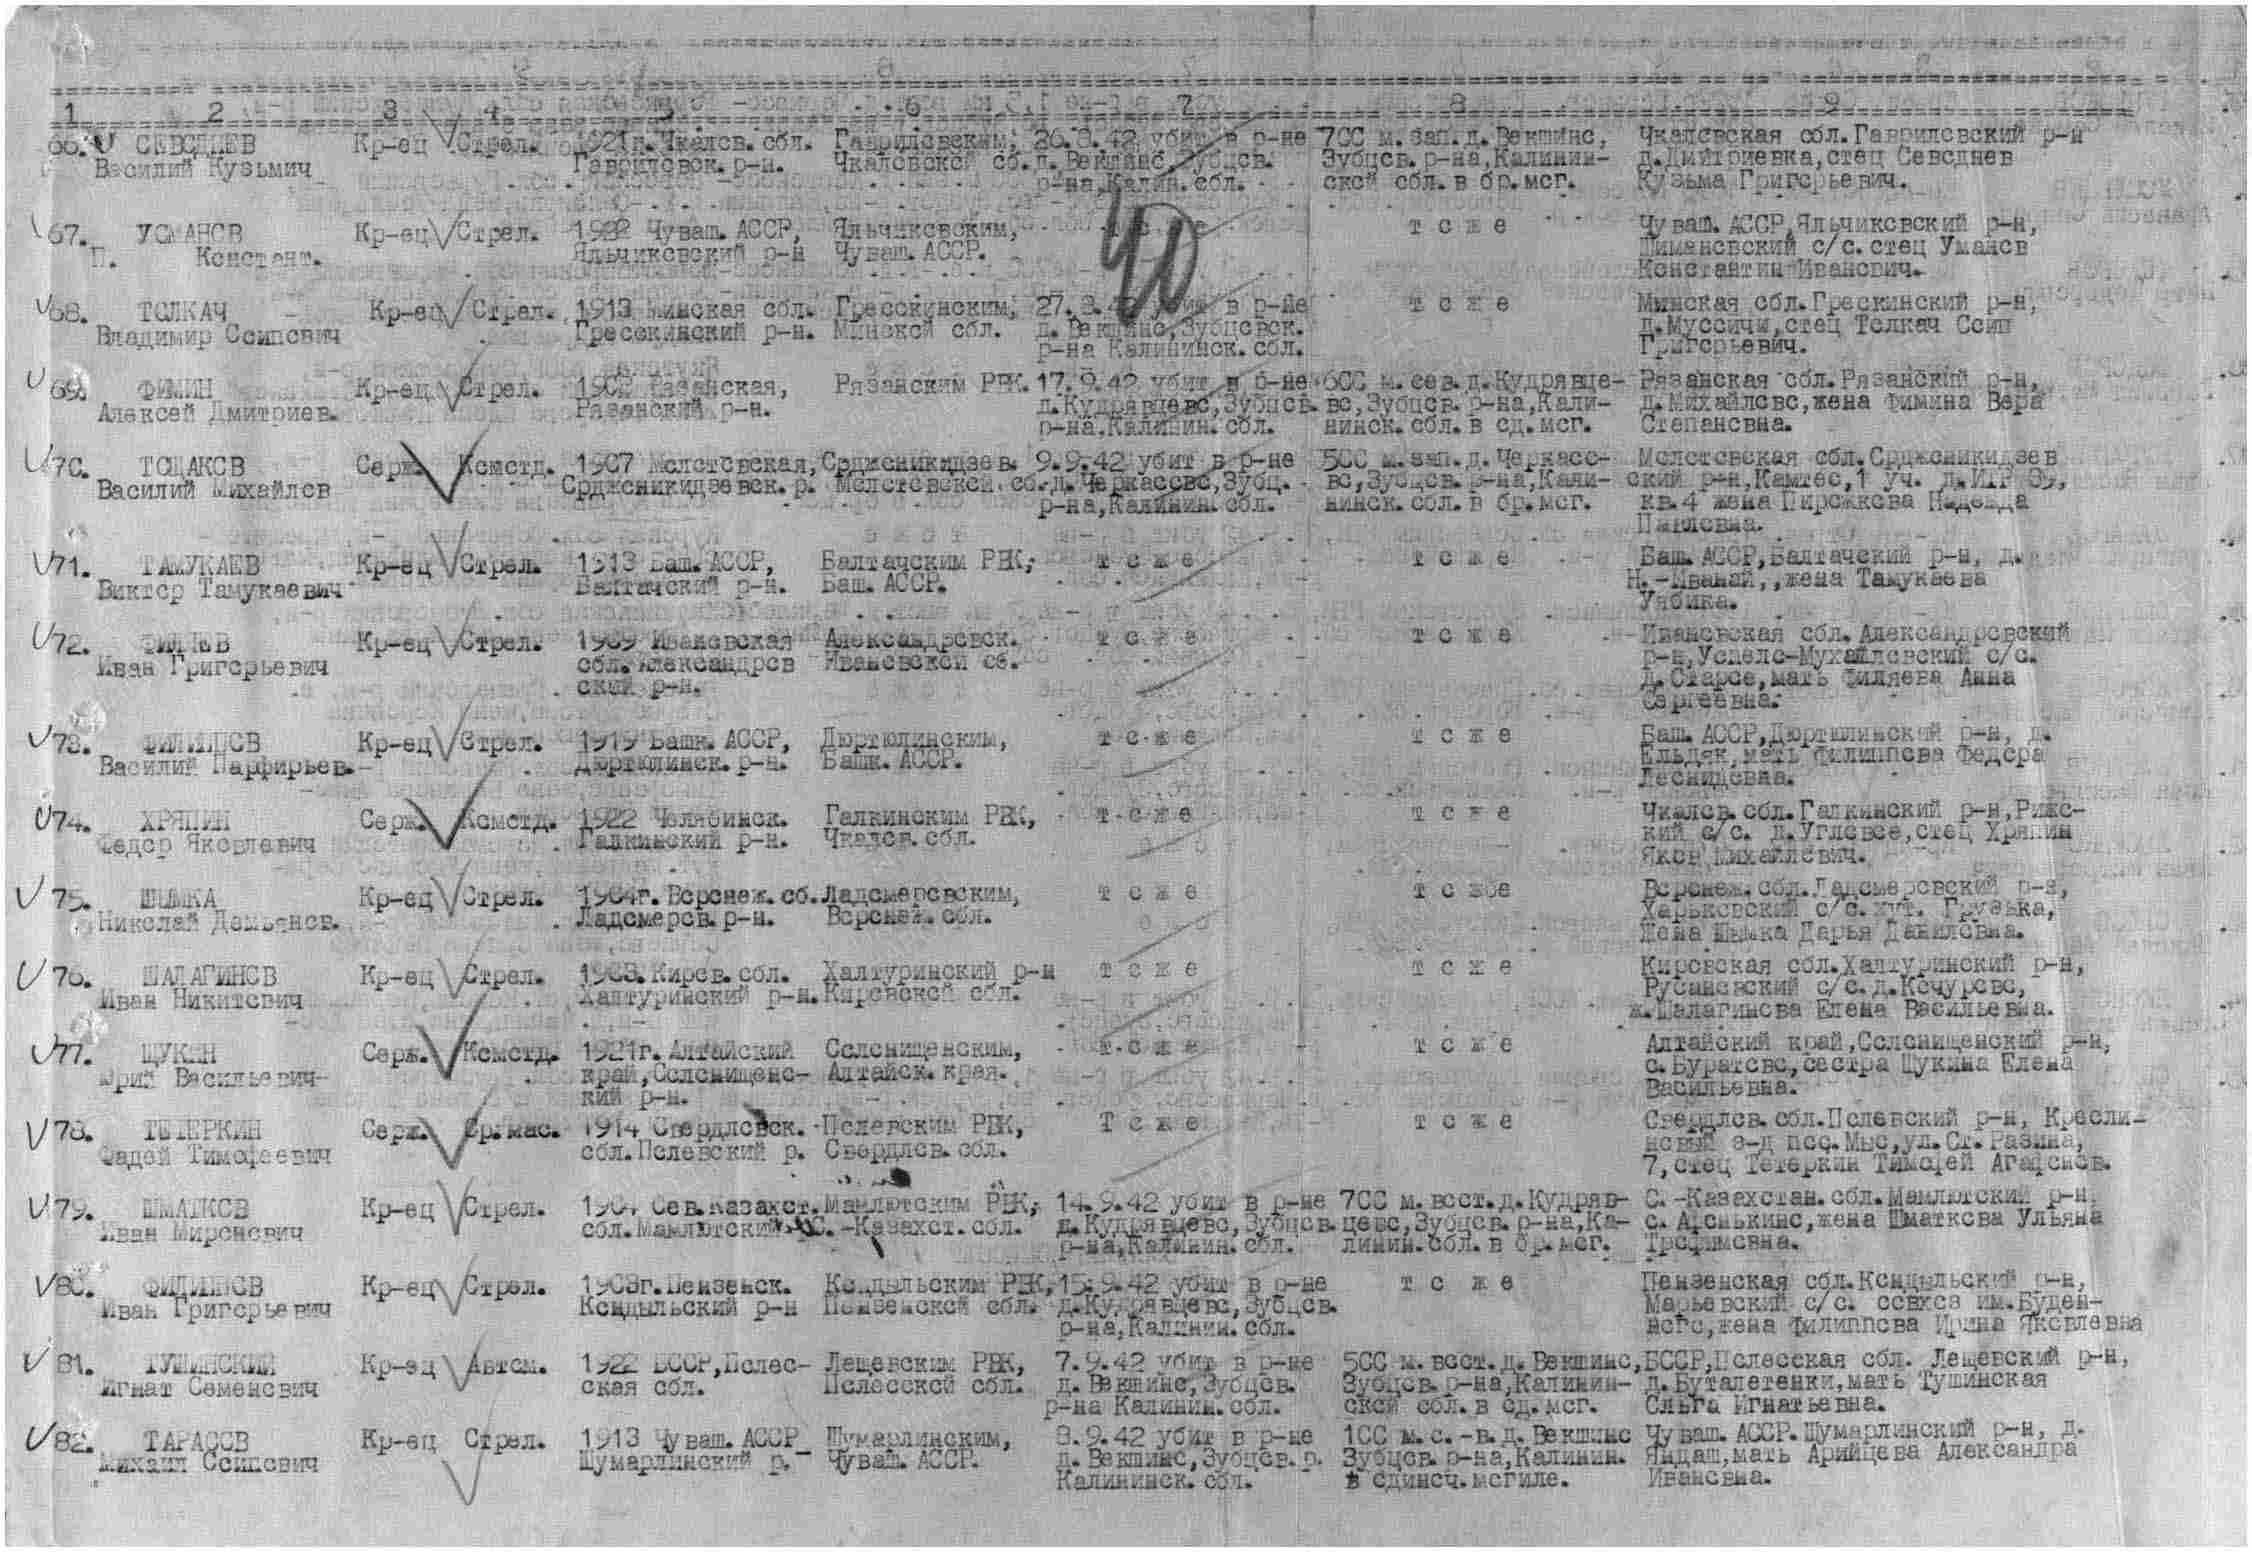 1 2 3 4 5 6 7 8 9
66. СЕВОДНЕВ Кр-ец Стрел. 1921г. Чкалов. обл. Гавриловским, 26.8.42 убит в р-не 700 м. зап. д. Векшино, Чкаловская обл. Гавриловский р-н
Василий Кузьмич Гавриловск. р-н. Чкаловской об. д. Векшино, Зубцов. Зубцов. р-на, Калинин- д. Дмитриевка, отец Севоднев
р-на, Калин. обл. ской обл. в бр. мог. Кузьма Григорьевич.
40
67. УСМАНОВ Кр-ец Стрел. 1922 Чуваш. АССР, Яльчиковским, т о ж е Чуваш. АССР, Яльчиковский р-н,
П. Констант. Яльчиковский р-н Чуваш. АССР. Шимановский с/с. отец Уманов
Константин Иванович.
68. ТОЛКАЧ Кр-ец Стрел. 1913 Минская обл. Гресскинским, 27.8.42 убит в р-не т о ж е Минская обл. Грескинский р-н,
Владимир Осипович Гресскинский р-н. Минской обл. д. Векшино, Зубцовск. д. Муссичи, отец Толкач Осип
р-на Калининск. обл. Григорьевич.
69. ФИМИН Кр-ец Стрел. Рязанская, Рязанским РВК. 17.9.42 убит в р-не 600 м. сев. д. Кудрявце- Рязанская обл. Рязанский р-н,
Алексей Дмитриев. Рязанский р-н. д. Кудрявцево, Зубцов. во, Зубцов. р-на, Кали- д. Михайлово, жена Фимина Вера
р-на, Калинин. обл. нинск. обл. в од. мог. Степановна.
70. ТОЩАКОВ Серж. Комотд. 1907 Молотовская, Орджоникидзев. 9.9.42 убит в р-не 500 м. зап. д. Черкасо- Молотовская обл. Орджоникидзев
Василий Михайлов Орджоникидзевск. р. Молотовской об. д. Черкассво, Зубц. во, Зубцов. р-на, Кали- ский р-н, Камтэс, 1 уч. д. ИТР 89,
р-на, Калинин. обл. нинск. обл. в бр. мог. кв. 4 жена Пирожкова Надежда
Павловна.
71. ТАМУКАЕВ Кр-ец Стрел. 1913 Баш. АССР, Балтачским РВК, т о ж е т о ж е Баш. АССР, Балтачский р-н, д.
Виктор Тамукаевич Балтачский р-н. Баш. АССР. Н.-Иванай,, жена Тамукаева
Уябика.
72. ФИЛЯЕВ Кр-ец Стрел. 1909 Ивановская Александровск. т о ж е т о ж е Ивановская обл. Александровский
Иван Григорьевич обл. Александров Ивановской об. р-н, Успело-Мухайловский с/с.
ский р-н. д. Старое, мать Филяева Анна
Сергеевна.
73. ФИЛИППОВ Кр-ец Стрел. 1919 Башк. АССР, Дюртюлинским, т о ж е т о ж е Баш. АССР, Дюртюлинский р-н, д.
Василий Парфирьев. Дюртюлинск. р-н. Башк. АССР. Ельдяк, мать Филиппова Федора
Леонидовна.
74. ХРЯПИН Серж. Комотд. 1922 Челябинск. Галкинским РВК, т о ж е т о ж е Чкалов. обл. Галкинский р-н, Рижс-
Федор Яковлевич Галкинский р-н. Чкалов. обл. кий с/с. д. Угловое, отец Хряпин
Яков Михайлович.
75. ШЫМКА Кр-ец Стрел. 1904г. Воронеж. об. Ладомеровским, т о ж е т о ж е Воронеж. обл. Ладомеровский р-н,
Николай Демьянов. Ладомеров. р-н. Воронеж. обл. Харьковский с/с. хут. Грузька,
Жена Шымка Дарья Даниловна.
76. ШАЛАГИНОВ Кр-ец Стрел. 1903. Киров. обл. Халтуринский р-н т о ж е т о ж е Кировская обл. Халтуринский р-н,
Иван Никитович Халтуринский р-н. Кировской обл. Русановский с/с. д. Кочурово,
ж. Шалагинова Елена Васильевна.
77. ЩУКИН Серж. Комотд. 1921г. Алтайский Солонищенским, т о ж е т о ж е Алтайский край, Солонищенский р-н,
Юрий Васильевич край, Солонищенс- Алтайск. края. с. Буратово, сестра Щукина Елена
кий р-н. Васильевна.
78. ТЕТЕРКИН Серж. Ор. мас. 1914 Свердловск. Полевским РВК, т о ж е т о ж е Свердлов. обл. Полевский р-н, Креоли-
Фадей Тимофеевич обл. Полевский р. Свердлов. обл. новый з-д пос. Мыс, ул. Ст. Разина,
7, отец Тетеркин Тимофей Агафонов.
79. ШМАТКОВ Кр-ец Стрел. 1904 Сев. Казахст. Мамлютским РВК, 14.9.42 убит в р-не 700 м. вост. д. Кудряв- С.-Казахстан. обл. Мамлютский р-н,
Иван Миронович обл. Мамлютский С.-Казахст. обл. д. Кудрявцево, Зубцов. цево, Зубцов. р-на, Ка- с. Афонькино, жена Шматкова Ульяна
р-на, Калинин. обл. линин. обл. в бр. мог. Трофимовна.
80. ФИЛИППОВ Кр-ец Стрел. 1903г. Пензенск. Кондыльским РВК, 15.9.42 убит в р-не т о ж е Пензенская обл. Кондыльский р-н,
Иван Григорьевич Кондыльский р-н Пензенской обл. д. Кудрявцево, Зубцов. Марьевский с/с. совхоз им. Буден-
р-на, Калинин. обл. ного, жена Филиппова Ирина Яковлевна
81. ТУШИНСКИЙ Кр-ец Автом. 1922 БССР, Полес- Лещевским РВК, 7.9.42 убит в р-не 500 м. вост. д. Векшино, БССР, Полесская обл. Лещевский р-н,
Игнат Семенович ская обл. Полесской обл. д. Векшино, Зубцов. Зубцов. р-на, Калинин- д. Буталетенки, мать Тушинская
р-на Калинин. обл. ской обл. в од. мог. Ольга Игнатьевна.
82. ТАРАСОВ Кр-ец Стрел. 1913 Чуваш. АССР Шумарлинским, 8.9.42 убит в р-не 100 м. с.-в. д. Векшино Чуваш. АССР. Шумарлинский р-н, д.
Михаил Осипович Шумарлинский р. Чуваш. АССР. д. Векшино, Зубцов. р. Зубцов. р-на, Калинин. Яндаш, мать Арийцева Александра
Калининск. обл. в одиноч. могиле. Ивановна.